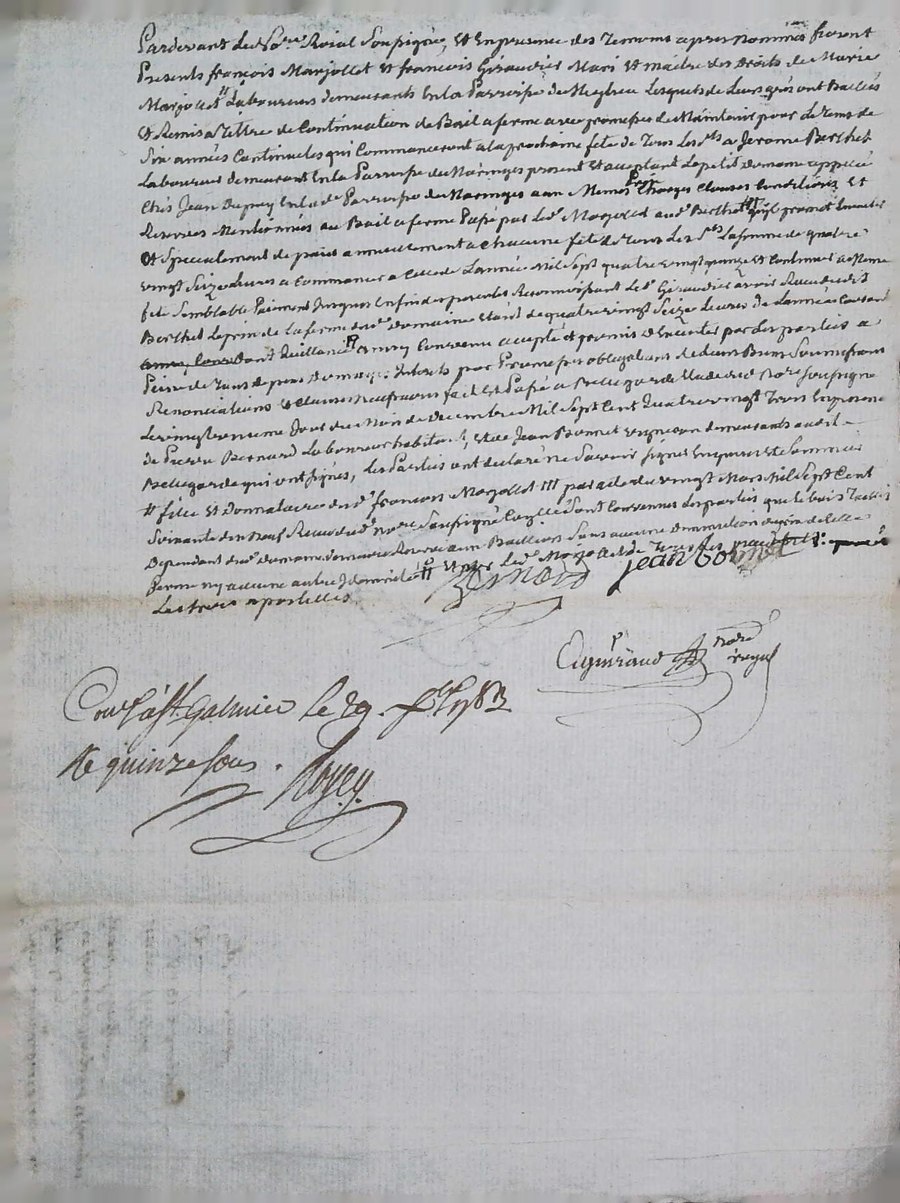 Pardevant le No.re Roial Soussigné, Et En presence des Temoins apres Nommés furent
Presents françois Marjollet Et francois Giraudier Mari Et maitre des Droits de Marie
Marjollet # Laboureurs demeurants En la Parroisse de Lesquels de Leurs grés ont Baillés
Et Remis a Tittre de Continuation de Bail a ferme avec promesses de Maintenir pour Le Tems de
Six années Continuelles qui Commanceront a la prochaine fete de Tous Les S.ts a Jerome Berthet
Laboureur demeurant En la Parroisse de Maringes present Et acceptant Le petit Domaine appellé
Chés Jean Dupuy En lad.e Parroisse de Maringes aux Memes Prix Charges Clauses Conditions Et
Reserves Mentionnées au Bail a ferme Passé par led. Marjollet aud. Berthet qu'il promet Executer
Et Specialement de paier annuellement a Chacune fete de Tous Les S.ts La Somme de quatre
vingt Seize Livres a Commancer a Celle de L'année Mil Sept quatre vingt quinze Et Continuer a Meme
fete Semblable Paiement Jusques En fin des presentes Reconnoissant Led. Giraudier avoir Receu dud.
Berthet Le prix de La ferme dud. Domaine Etant de quatre vingt Seize Livres de L'année Courant
dont Quittance # ainsy Convenu accepté Et promis Executer par Les parties a
Peine de Tous Depens Domages Interets par Promesses obligations de Leurs Biens Soumissions
Renonciations Et Clauses fait Et Passé a Bellegarde Etude dud. No.re Soussigné
Le vingt Jour du Mois de Decembre Mil Sept Cent Quatre vingt Trois En presence
de Pierre Bernard Laboureur habitant, Et de Jean Bonnet vigneron demeurants aud.
Bellegarde qui ont Signés, Les Parties ont declaré ne Savoir Signer Enquises Et Sommées
# fille Et Donataire dud. francois Marjollet par acte du vingt Mars Mil Sept Cent
Soixante dix Neuf Receu dud. No.re Soussigné Sont Convenues Les parties que le bois Taillis
Dependant dud. Domaine Demeure Reservé aux Bailleurs Sans aucune Diminution du prix de Lad.e
ferme ny aucune autre Indemnité # Et par Led. Marjollet de Tous Les
Les trois apostilles
Bernard Jean bonnet
not.re royal
Con.lé a S.t Galmier le 29. X.bre 1783
R quinze sous.